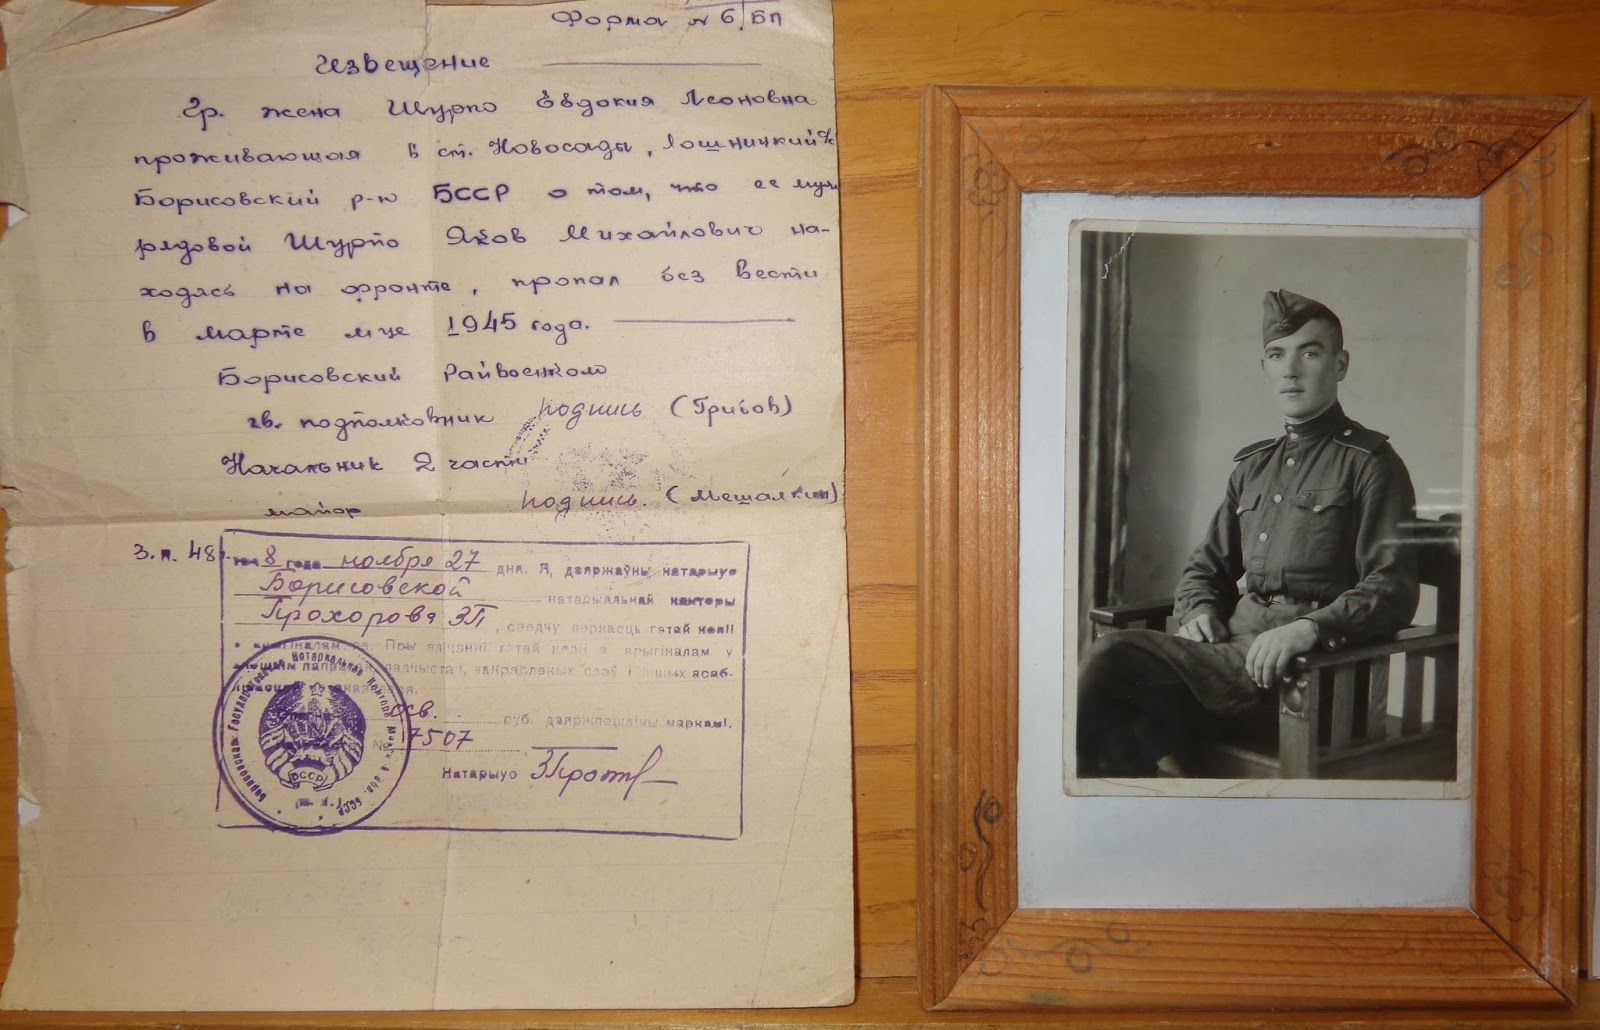 Форма № 6/БП
Извещение
Гр. жена Шурпо Евдокия Леоновна
проживающая в ст. Новосады, Лошницкий с/с
Борисовский р-ю БССР о том, что ее муж
рядовой Шурпо Яков Михайлович на-
ходясь на фронте, пропал без вести
в марте м-це 1945 года.
Борисовский Райвоенком
гв. подполковник подпись (Грибов)
Начальник 2 части
майор подпись. (Мешалкин)
З.п. 48
8 года ноября 27 дня. Я, дзяржаўны натарыус
Борисовской натарыяльнай канторы
Прохорова ЗП, сведчу вернасць гэтай копіі
Пры злічэнні гэтай копіі з арыгіналам у
закрэсленых слоў і іншых асаб-
осв. руб. дзяржпошліны маркамі.
№ 7507
Натарыус
Борисовская Государственная Нотариальная Контора
БССР